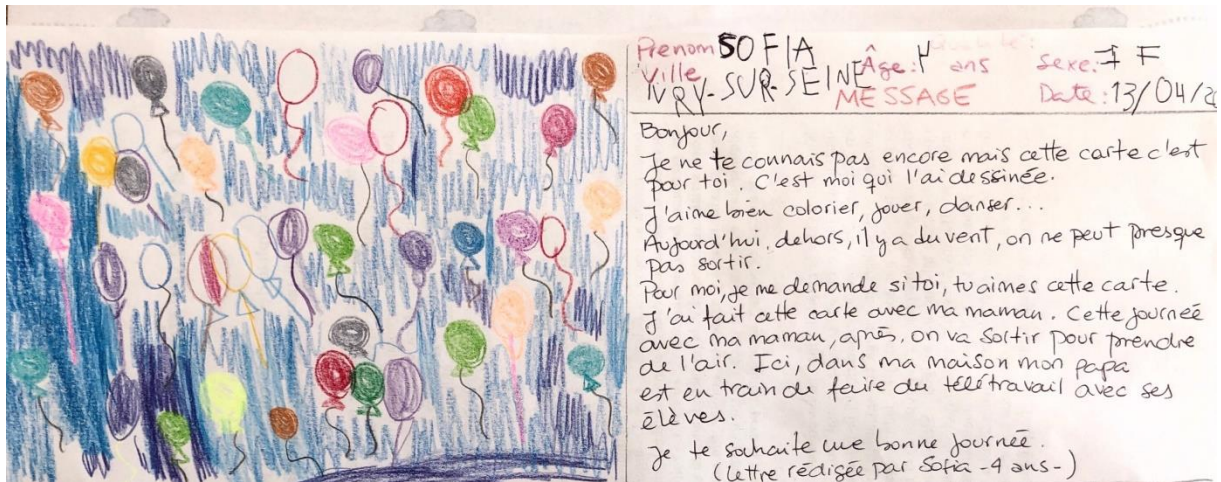 Prenom SOFIA
Âge: 4 ans
Sexe: F
Ville IVRY-SUR-SEINE
MESSAGE
Date: 13/04/20
Bonjour,
Je ne te connais pas encore mais cette carte c'est
pour toi. C'est moi qui l'ai dessinée.
J'aime bien colorier, jouer, danser...
Aujourd'hui, dehors, il y a du vent, on ne peut presque
pas sortir.
Pour moi, je me demande si toi, tu aimes cette carte.
J'ai fait cette carte avec ma maman. Cette journée
avec ma maman, après, on va sortir pour prendre
de l'air. Ici, dans ma maison mon papa
est en train de faire du télétravail avec ses
élèves.
Je te souhaite une bonne journée.
(Lettre rédigée par Sofia -4 ans-)